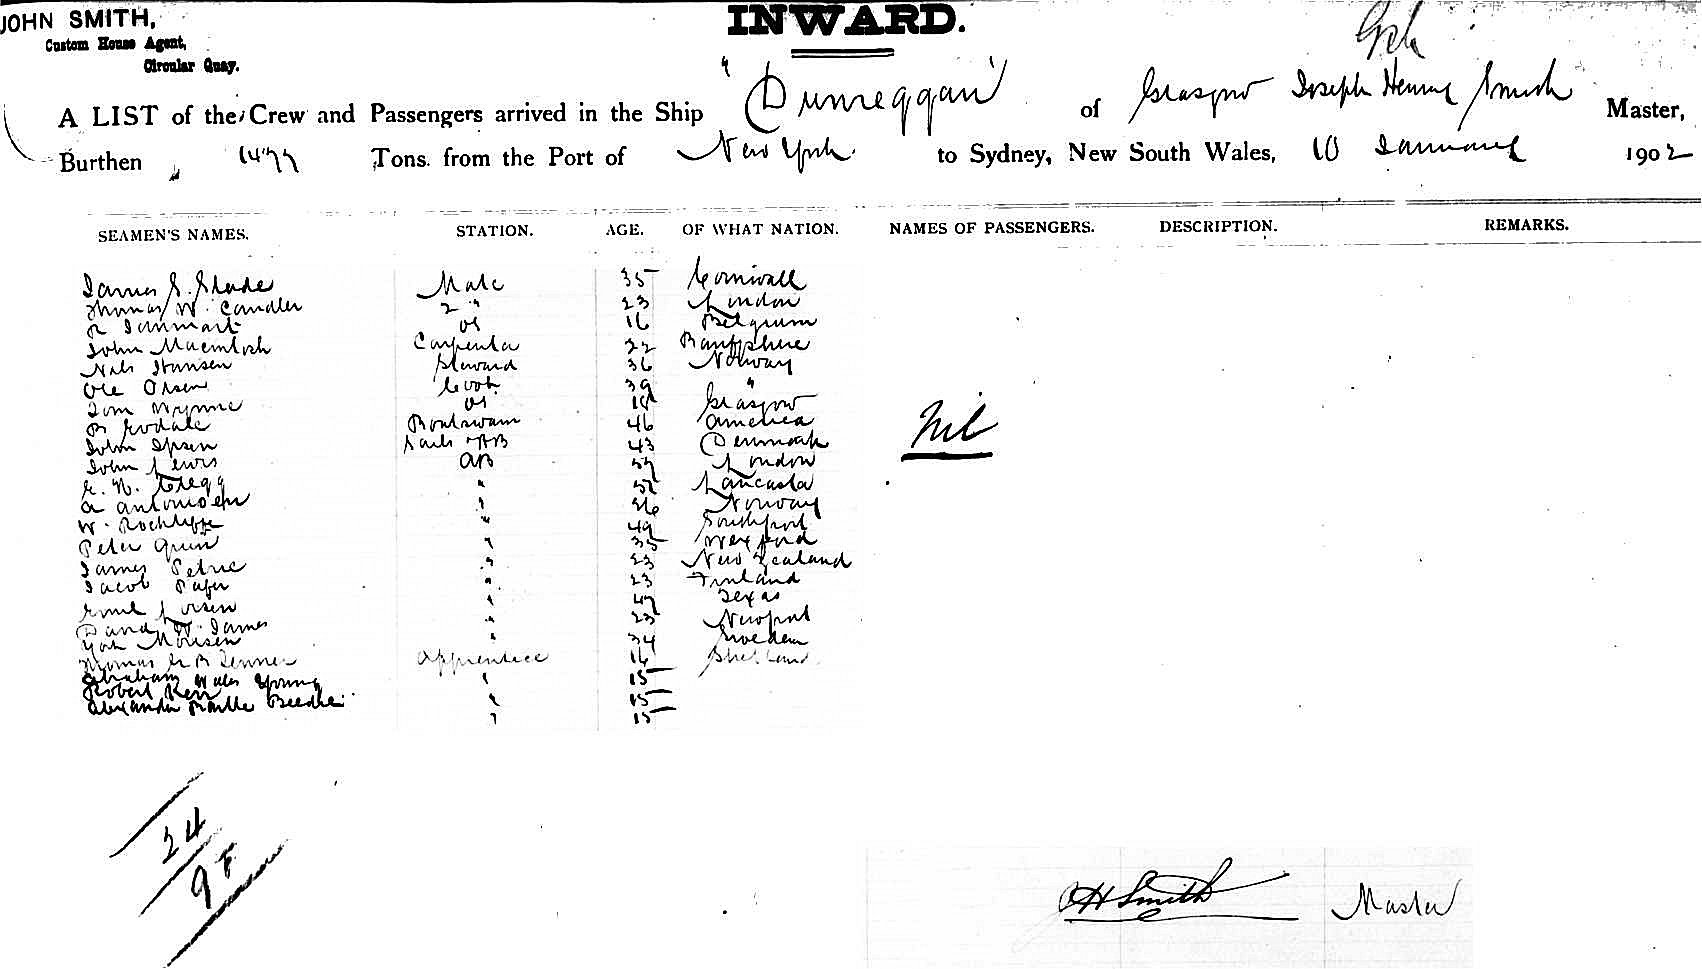 JOHN SMITH,
Custom House Agent,
Circular Quay.
INWARD.
A LIST of the Crew and Passengers arrived in the Ship "Dunreggan" of Glasgow Joseph Henry Smith Master,
Burthen 1477 Tons. from the Port of New York to Sydney, New South Wales, 10 January 1902
SEAMEN'S NAMES. STATION. AGE. OF WHAT NATION. NAMES OF PASSENGERS. DESCRIPTION. REMARKS.
James S. Slade Mate 35 Cornwall
Thomas W. Candler 2 " 23 London
R 16 Belgium
John Macintosh Carpenter 22 Banffshire
Nils Hansen Steward 36 Norway
Ole Olsen Cook 39 "
Tom Wynne OS Glasgow
B Boatswain 46 America
John Ipsen Sails & AB 43 Denmark
John Lewis AB London
E. N. Clegg " Lancaster
A Antonsen " 26 Norway
W. " 49 Southport
Peter Quinn " 35 Wexford
James Petrie " 23 New Zealand
Jacob " 23 Finland
Emil Larsen " 47 Texas
David W. James " 23 Newport
Morisen " 34 Sweden
Thomas Apprentice 16 Shetland
Abraham Wales Young " 15
Robert Kerr " 15
Alexander " 15
Nil
24
98
JH Smith Master